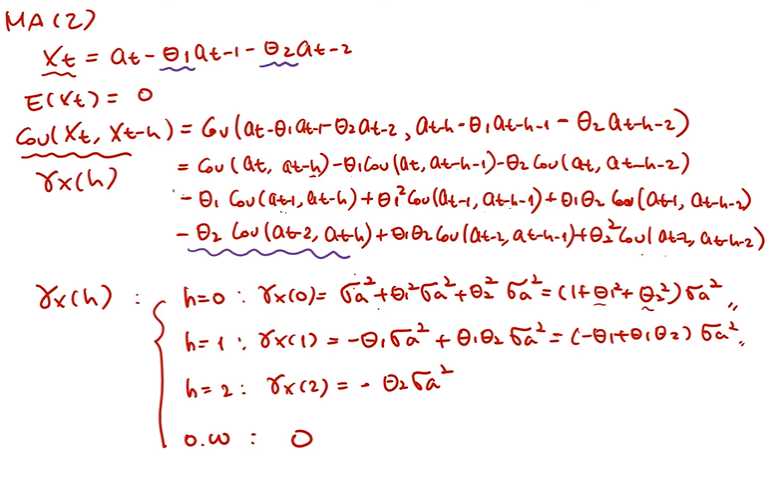 MA(2)
Xt = at - θ1at-1 - θ2at-2
E(Xt) = 0
Cov(Xt, Xt-h) = Cov(at-θ1at-1-θ2at-2, at-h-θ1at-h-1 - θ2at-h-2)
γx(h) = Cov(at, at-h) - θ1Cov(at, at-h-1) - θ2Cov(at, at-h-2)
- θ1 Cov(at-1, at-h) + θ1²Cov(at-1, at-h-1) + θ1θ2 Cov(at-1, at-h-2)
- θ2 Cov(at-2, at-h) + θ1θ2Cov(at-2, at-h-1) + θ2²Cov(at-2, at-h-2)
γx(h) : { h=0 : γx(0) = σa² + θ1²σa² + θ2²σa² = (1+θ1²+θ2²)σa²,,
h=1 : γx(1) = -θ1σa² + θ1θ2σa² = (-θ1+θ1θ2)σa²,,
h=2 : γx(2) = - θ2σa²
o.w : 0